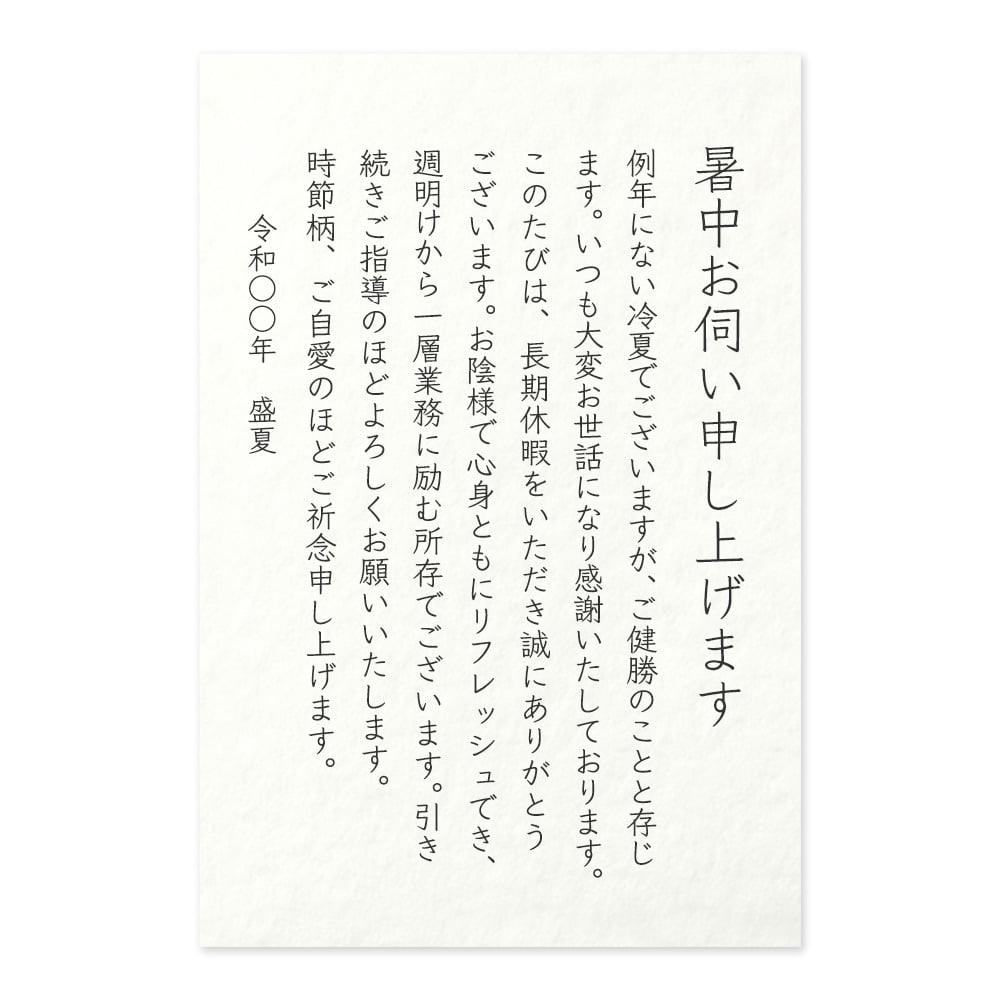 暑中お伺い申し上げます
例年にない冷夏でございますが、ご健勝のことと存じ
ます。いつも大変お世話になり感謝いたしております。
このたびは、長期休暇をいただき誠にありがとう
ございます。お陰様で心身ともにリフレッシュでき、
週明けから一層業務に励む所存でございます。引き
続きご指導のほどよろしくお願いいたします。
時節柄、ご自愛のほどご祈念申し上げます。
令和〇〇年　盛夏